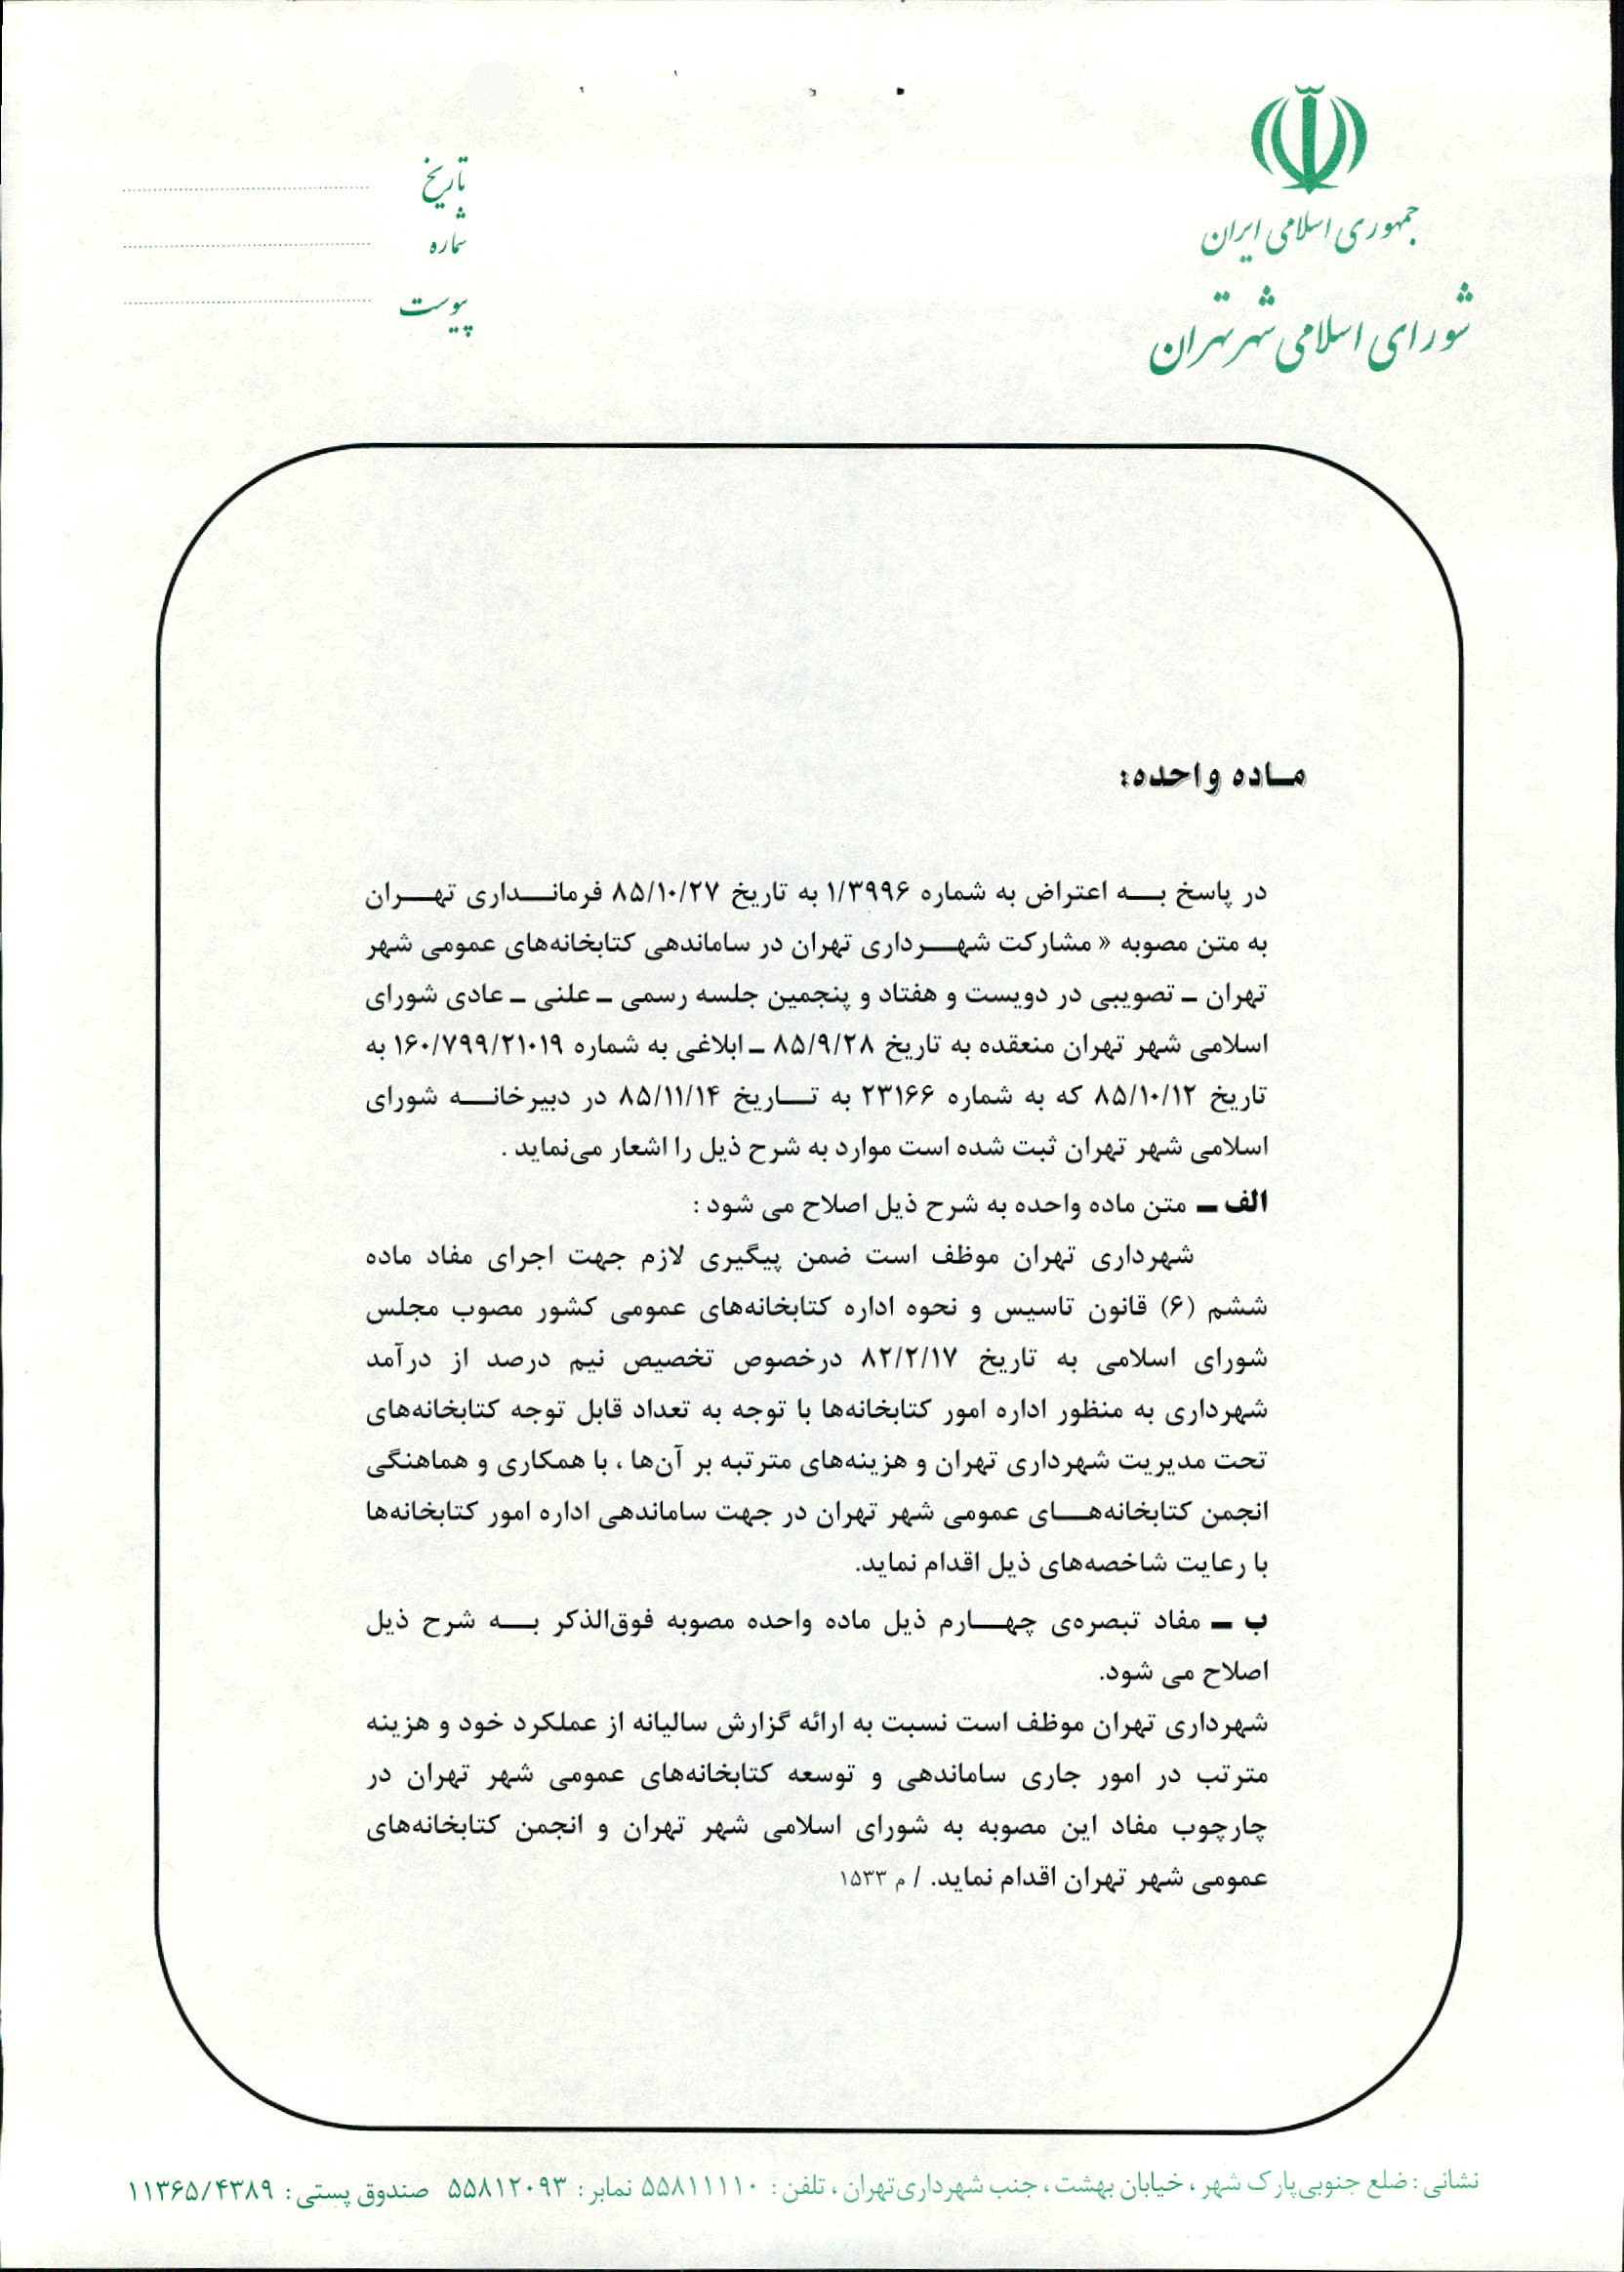 جمهوری اسلامی ایران
شورای اسلامی شهر تهران
تاریخ
شماره
پیوست
مــاده واحده:
در پاسخ بــه اعتراض به شماره ۱/۳۹۹۶ به تاریخ ۸۵/۱۰/۲۷ فرمانــداری تهــران
به متن مصوبه « مشارکت شهــرداری تهران در ساماندهی کتابخانه‌های عمومی شهر
تهران – تصویبی در دویست و هفتاد و پنجمین جلسه رسمی – علنی – عادی شورای
اسلامی شهر تهران منعقده به تاریخ ۸۵/۹/۲۸ – ابلاغی به شماره ۱۶۰/۷۹۹/۲۱۰۱۹ به
تاریخ ۸۵/۱۰/۱۲ که به شماره ۲۳۱۶۶ به تــاریخ ۸۵/۱۱/۱۴ در دبیرخانــه شورای
اسلامی شهر تهران ثبت شده است موارد به شرح ذیل را اشعار می‌نماید .
الف – متن ماده واحده به شرح ذیل اصلاح می شود :
شهرداری تهران موظف است ضمن پیگیری لازم جهت اجرای مفاد ماده
ششم (۶) قانون تاسیس و نحوه اداره کتابخانه‌های عمومی کشور مصوب مجلس
شورای اسلامی به تاریخ ۸۲/۲/۱۷ درخصوص تخصیص نیم درصد از درآمد
شهرداری به منظور اداره امور کتابخانه‌ها با توجه به تعداد قابل توجه کتابخانه‌های
تحت مدیریت شهرداری تهران و هزینه‌های مترتبه بر آن‌ها ، با همکاری و هماهنگی
انجمن کتابخانه‌هــای عمومی شهر تهران در جهت ساماندهی اداره امور کتابخانه‌ها
با رعایت شاخصه‌های ذیل اقدام نماید.
ب – مفاد تبصره‌ی چهــارم ذیل ماده واحده مصوبه فوق‌الذکر بــه شرح ذیل
اصلاح می شود.
شهرداری تهران موظف است نسبت به ارائه گزارش سالیانه از عملکرد خود و هزینه
مترتب در امور جاری ساماندهی و توسعه کتابخانه‌های عمومی شهر تهران در
چارچوب مفاد این مصوبه به شورای اسلامی شهر تهران و انجمن کتابخانه‌های
عمومی شهر تهران اقدام نماید. / م ۱۵۳۳
نشانی : ضلع جنوبی‌پارک شهر ، خیابان بهشت ، جنب شهرداری‌تهران ، تلفن : ۵۵۸۱۱۱۱۰ نمابر : ۵۵۸۱۲۰۹۳ صندوق پستی : ۱۱۳۶۵/۴۳۸۹